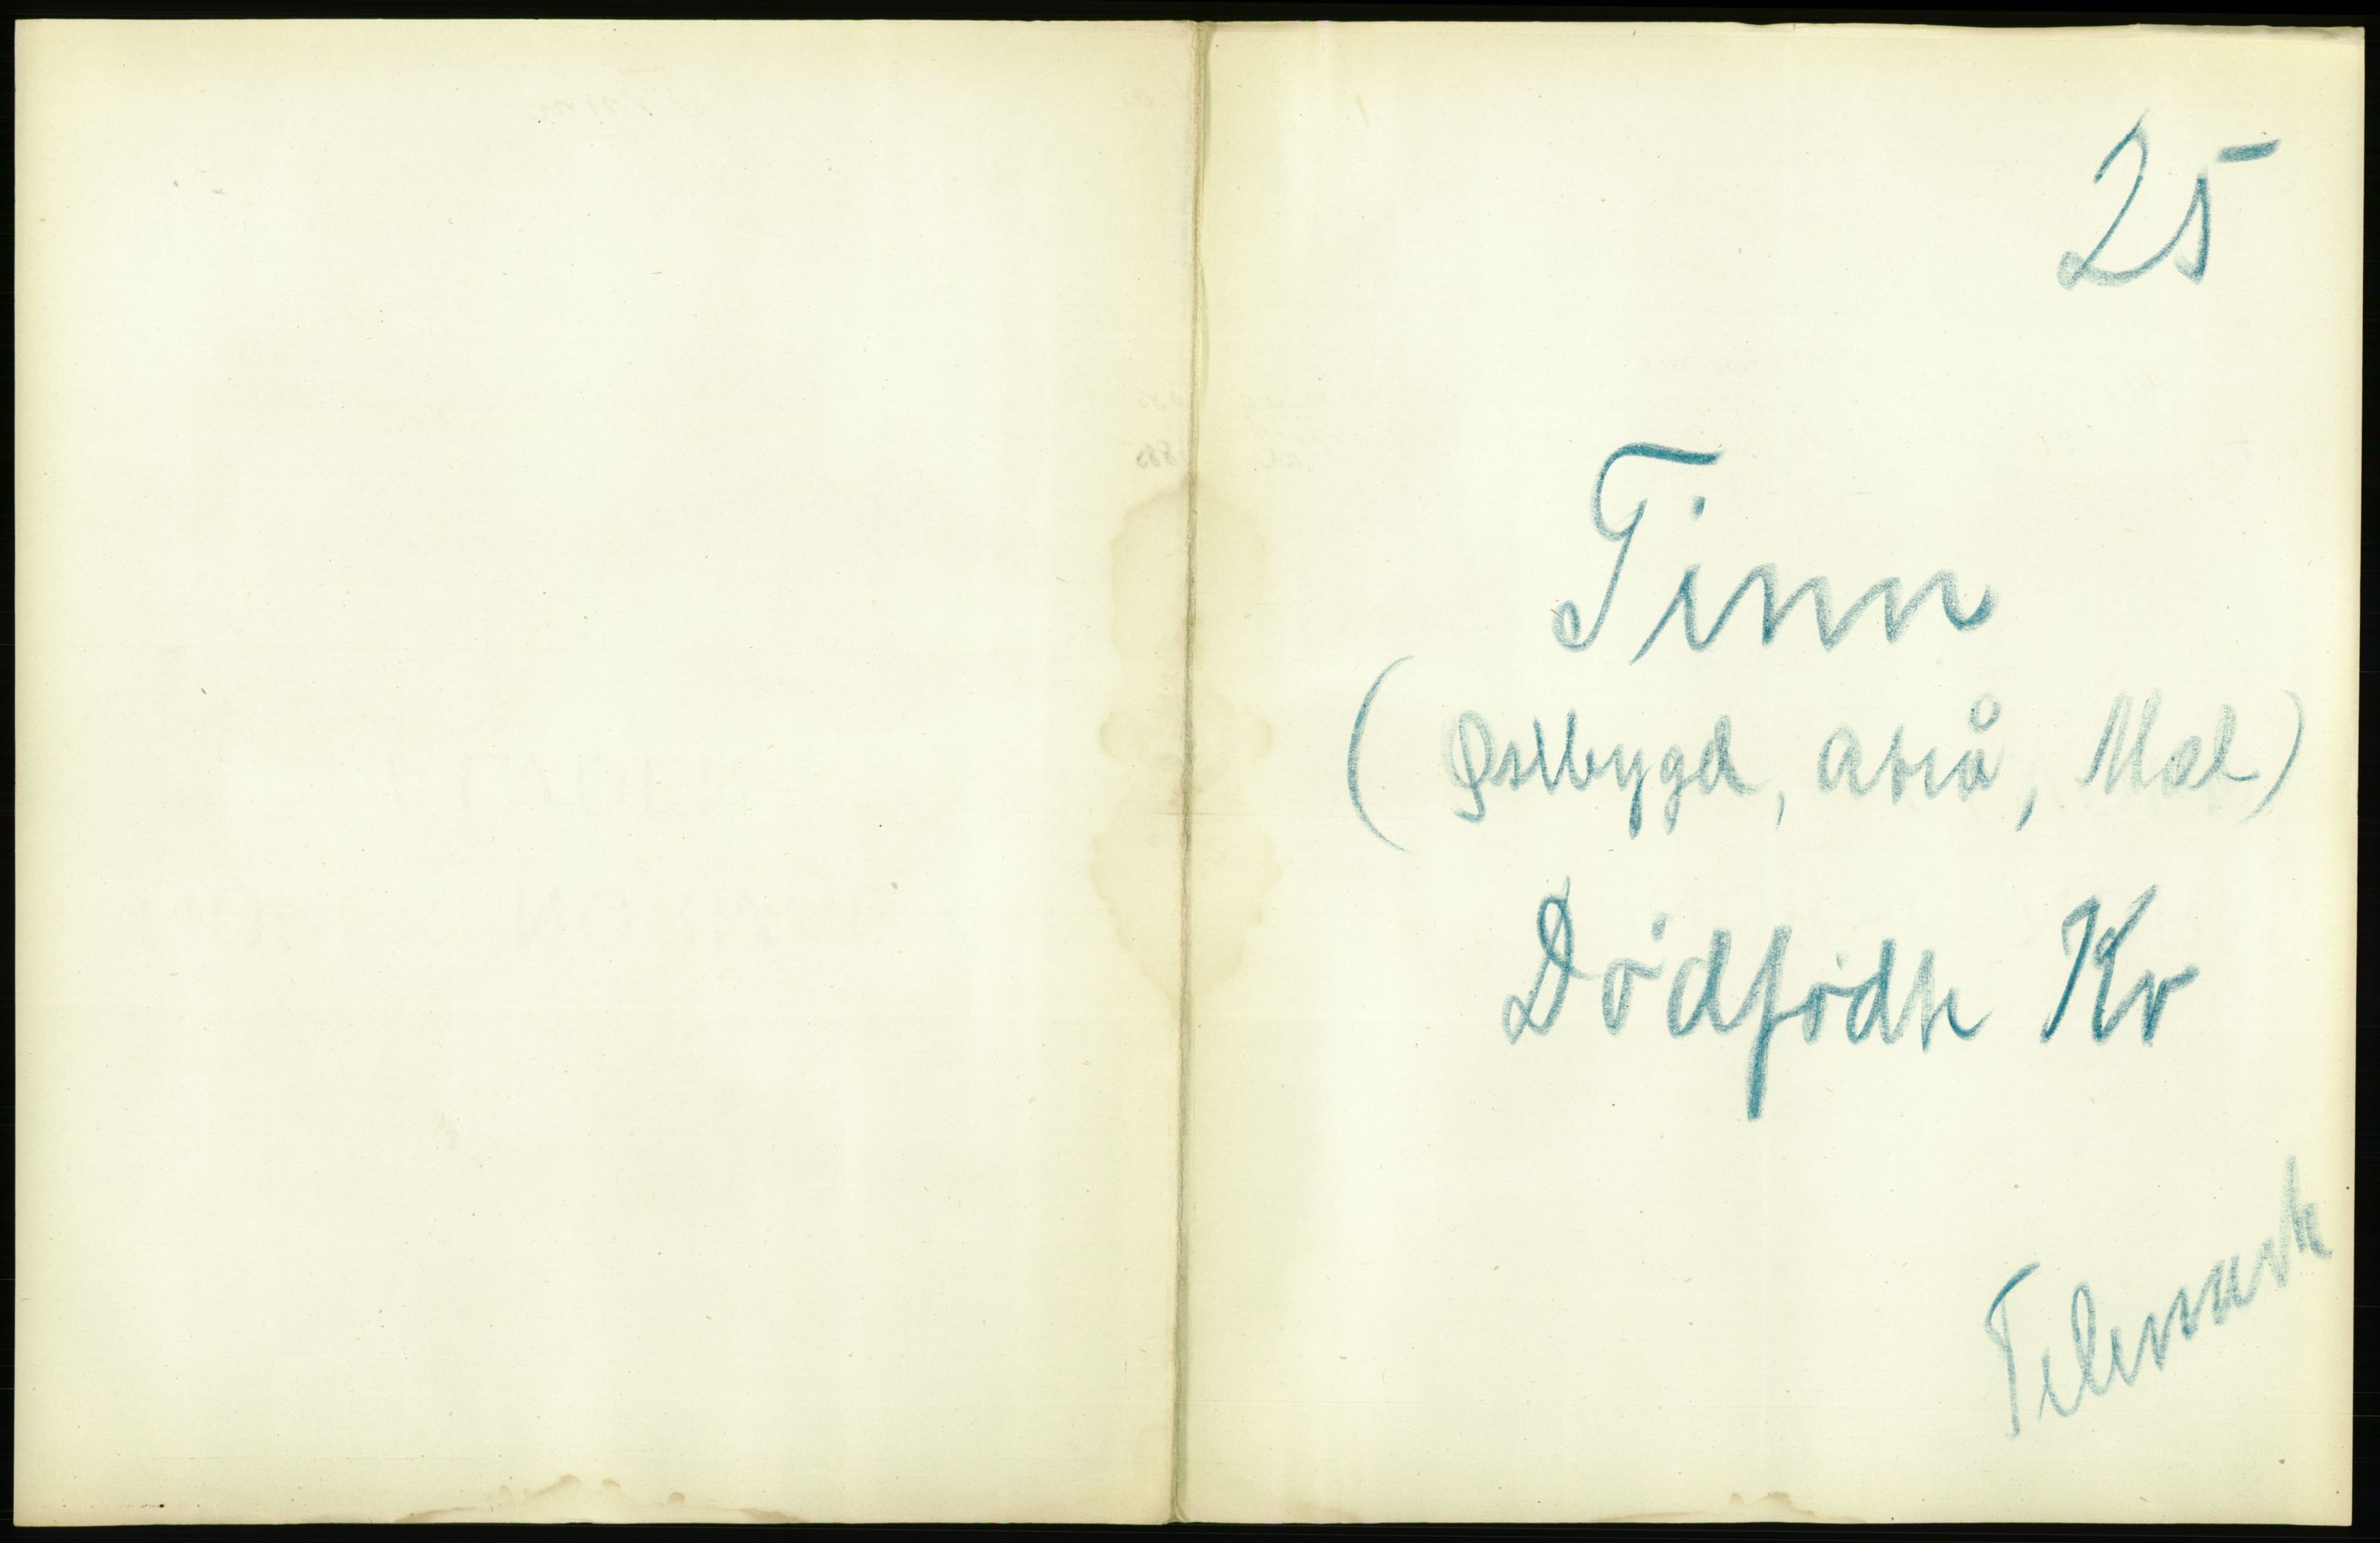 25
Tinn
(Østbygd, Atrå, Mæl)
Dødfødte Kv
Telemark